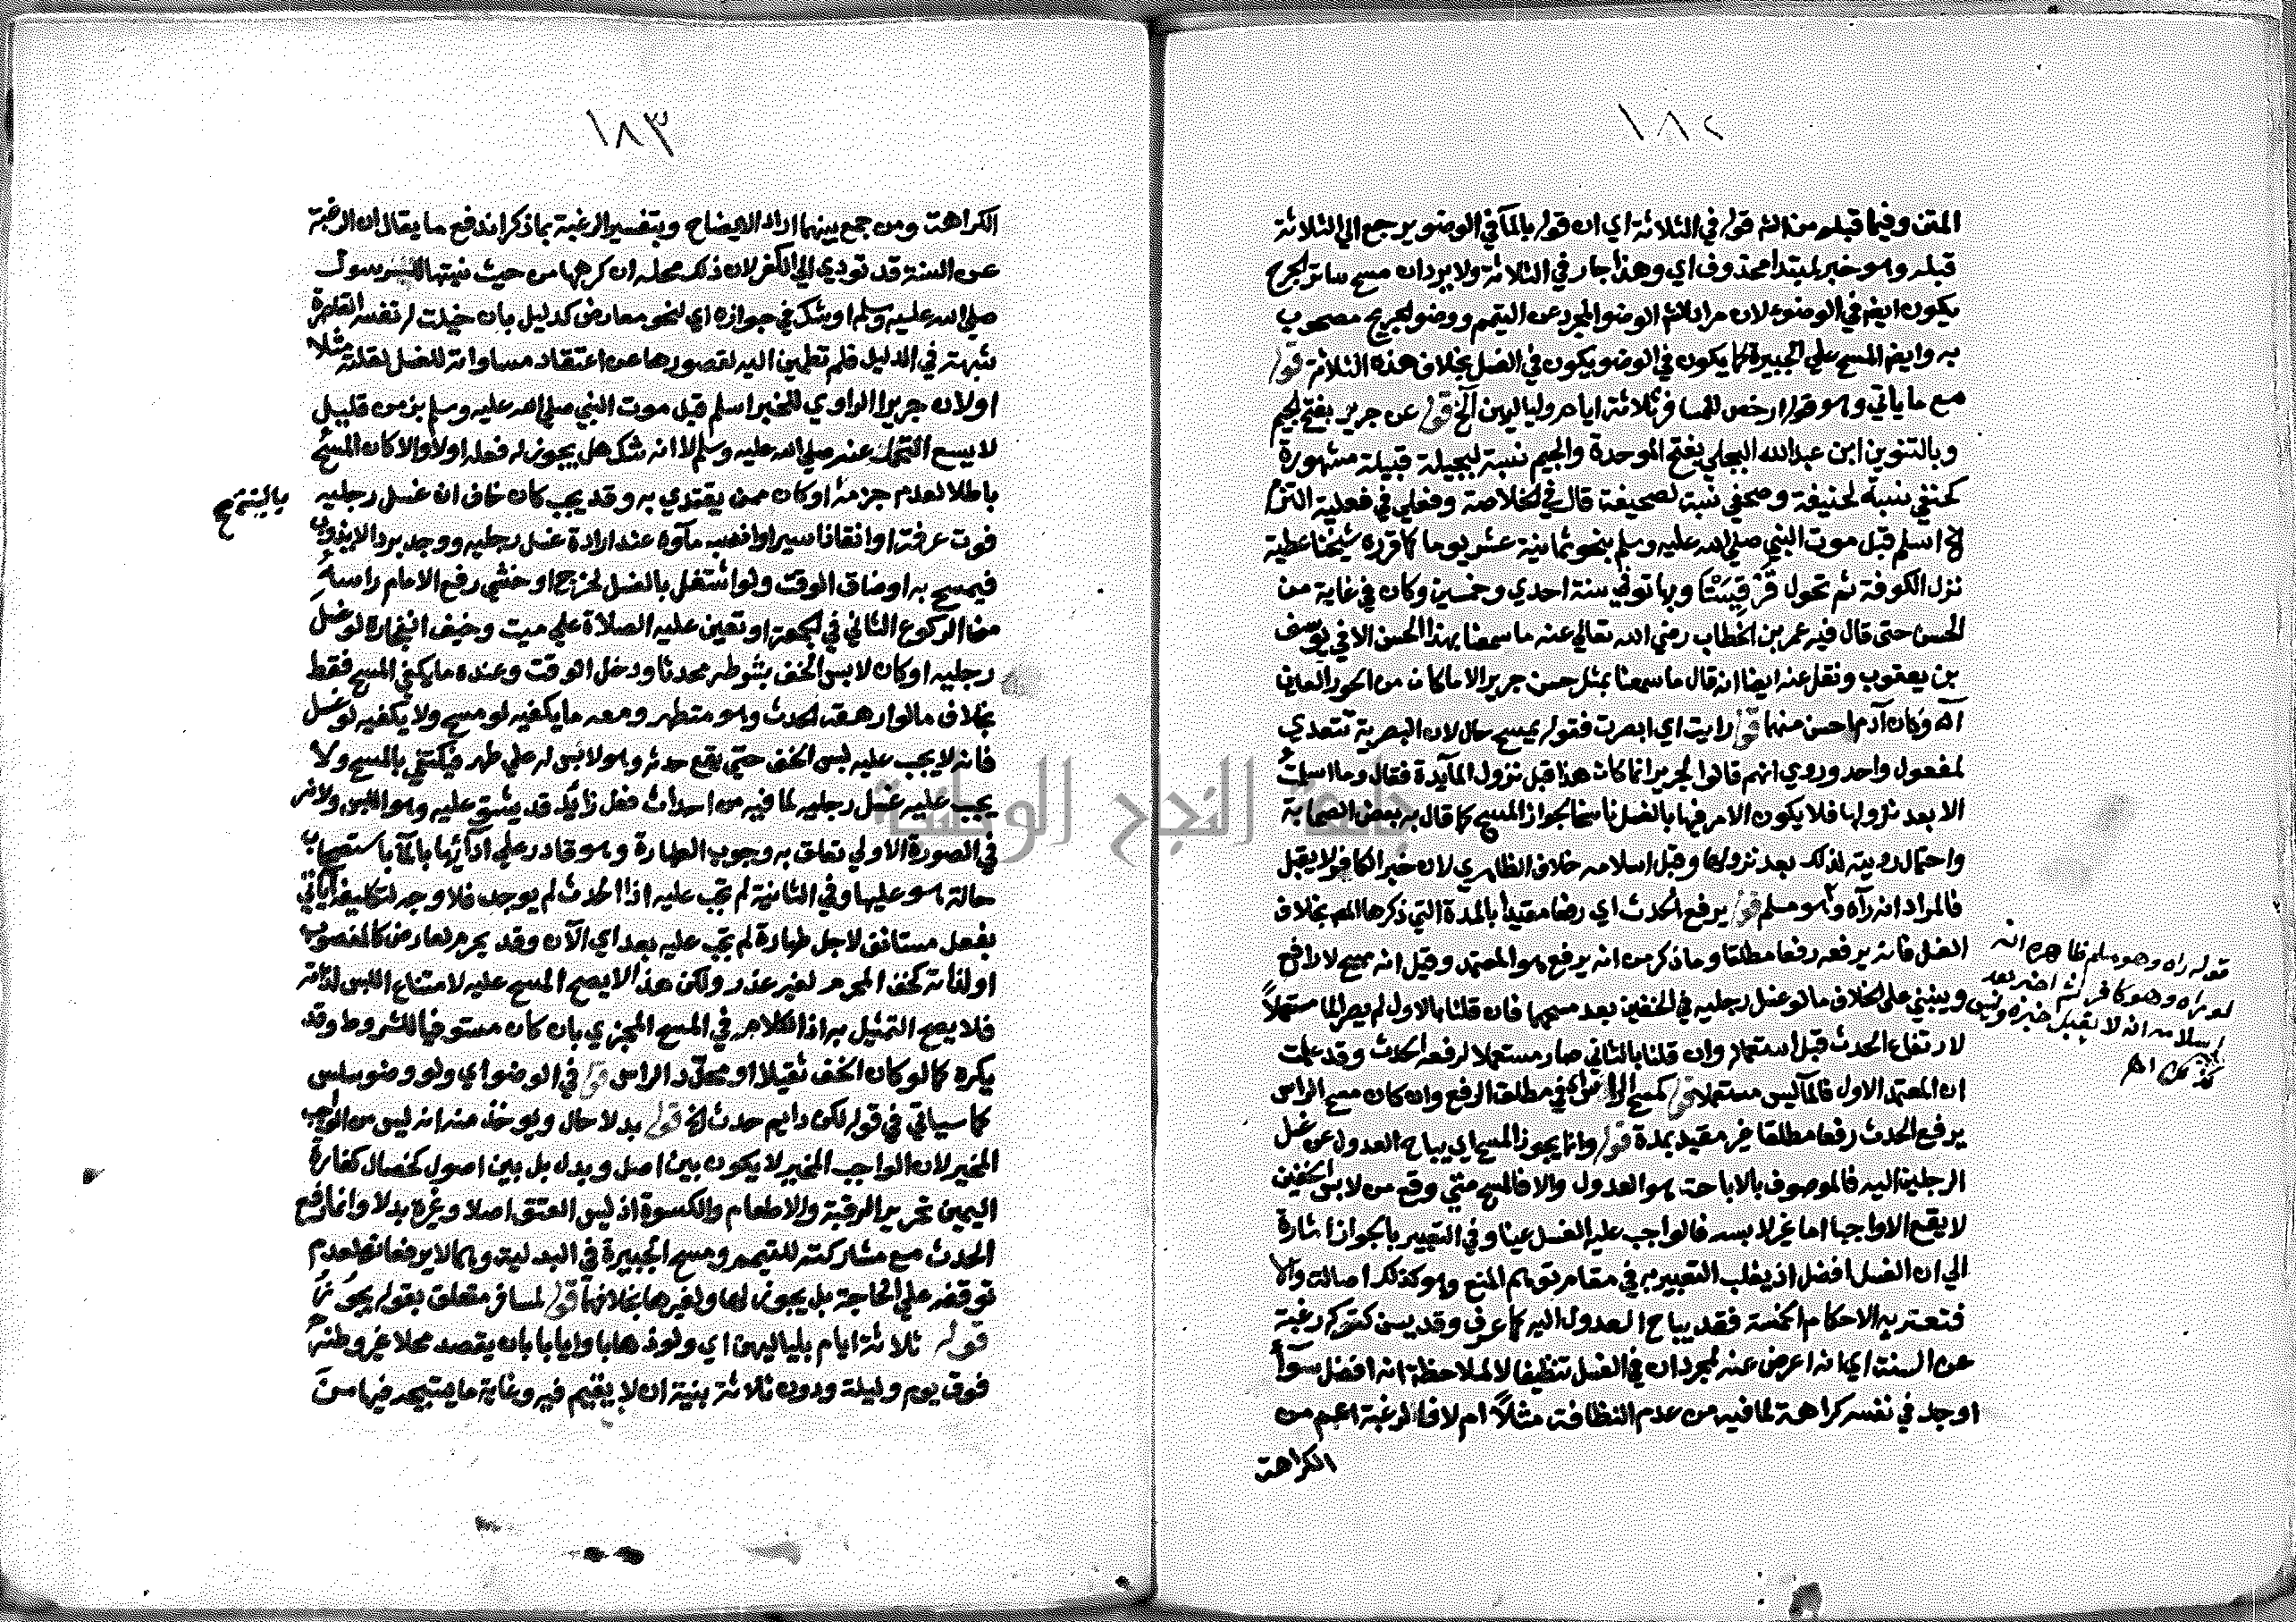 ١٨٢
المتن وفيما قبله من الثم قوله في الثلاثة اي ان قوله بالمآ في الوضو يرجع الي الثلاثة
قبله وهو خبر لمبتدا محذوف اي وهذا جار في الثلاثة ولا يرد ان مسح ساتر الجرح
يكون ايضا في الوضوء لان مراد الثم الوضو المجرد عن التيمم ووضو الجريح مصحوب
به وايضا المسح علي الجبيرة كما يكون في الوضو يكون في الغسل بخلاف هذه الثلاثة قوله
مع ما ياتي وهو قوله ارخص للمسافر ثلاثة ايام ولياليهن الخ قوله عن جرير بفتح الجيم
وبالتنوين ابن عبد الله البجلي بفتح الموحدة والجيم نسبة لبجيلة قبيلة مشهورة
كحنفي نسبة لحنيفة وصحفي نسبة لصحيفة قال في الخلاصة وفعلي في فعلية التزم
اسلم قبل موت النبي صلي الله عليه وسلم بنحو ثمانية عشر يوما كما قرره شيخنا عطية
نزل الكوفة ثم تحول قرقيسا وبها توفي سنة احدي وخمسين وكان في غاية من
الحسن حتي قال فيه عمر بن الخطاب رضي الله تعالي عنه ما سمعنا بهذا الحسن الا في يوسف
بن يعقوب ونقل عنه ايضا انه قال ما سمعنا بمثل حسن جرير الا ما كان من الحور العين
اه وكان آدم احسن منهما قوله رايت اي ابصرت فقوله يمسح حال لان البصرية تتعدي
لمفعول واحد وروي انهم قالوا لجرير انما كان هذا قبل نزول المآيدة فقال وما اسلمت
الا بعد نزولها فلا يكون الامر فيها بالغسل ناسخا لجواز المسح كما قال به بعض الصحابة
واحتمال رويته لذلك بعد نزولها وقبل اسلامه خلاف الظاهر اي لان خبر الكافر لا يقبل
فالمراد انه رآه وهو مسلم قوله يرفع الحدث اي رفعا مقيدا بالمدة التي ذكرها المص بخلاف
الغسل فانه يرفعه رفعا مطلقا وما ذكر من انه يرفع هو المعتمد وقيل انه مبيح لا رافع
وينبني علي الخلاف ما لو غسل رجليه في الخفين بعد مسحهما فان قلنا بالاول لم يصر الما مستعملاً
لارتفاع الحدث قبل استعماله وان قلنا بالثاني صار مستعملا لرفعه الحدث وقد علمت
ان المعتمد الاول فالمآ ليس مستعملا قوله كمسح الراس اي في مطلق الرفع وان كان مسح الراس
يرفع الحدث رفعا مطلقا غير مقيد بمدة قوله وانما يجوز المسح اي يباح العدول عن غسل
الرجلين اليه فالموصوف بالاباحة هو العدول والا فالمسح متي وقع من لابس الخفين
لا يقع الا واجبا اما غير لابسه فالواجب عليه الغسل عينا وفي التعبير بالجواز اشارة
الي ان الغسل افضل اذ يغلب التعبير به في مقام توهم المنع وهو كذلك اصالة والا
فتعتريه الاحكام الخمسة فقد يباح العدول اليه كما عرف وقد يسن كتركه رغبة
عن السنة اي انه اعرض عنه لمجرد ان في الغسل تنظيفا لا لملاحظة انه افضل سوآ
اوجد في نفسه كراهة لما فيه من عدم النظافة مثلاً ام لا فالرغبة اعم من
الكراهة
قوله راه وهو مسلم ظاهره انه
لو راه وهو كافر ثم اخبر بعد
اسلامه انه لا يقبل خبره وليس
كذلك اه
١٨٣
الكراهة ومن جمع بينهما اراد الايضاح وبتفسير الرغبة بما ذكر اندفع ما يقال ان الرغبة
عن السنة قد تودي الي الكفر لان ذلك محله ان كرهها من حيث نسبتها لرسول
صلي الله عليه وسلم او شك في جوازه اي لنحو معارض كدليل بان خيلت له نفسه القاصرة
شبهة في الدليل فلم تطمين اليه لقصورها عن اعتقاد مساواته للغسل لقلته مثلا
او لان جريرا الراوي للخبر اسلم قبل موت النبي صلي الله عليه وسلم بزمن قليل
لا يسع التحمل عنه صلي الله عليه وسلم لا انه شك هل يجوز له فعله اولا والا كان المسح
باطلا لعدم جزمه او كان ممن يقتدي به وقد يجب كان خاف ان غسل رجليه
بالنية صح
فوت عرفة او انقاذ اسير او انصب مآوه عند ارادة غسل رجليه ووجد برد الا يذوب
فيمسح به او ضاق الوقت ولو اشتغل بالغسل لخرج او خشي رفع الامام راسه
من الركوع الثاني في الجمعة او تعين عليه الصلاة علي ميت وخيف انفجاره لو غسل
رجليه او كان لابس الخف بشرطه محدثا ودخل الوقت وعنده ما يكفي المسح فقط
بخلاف ما لو ارهقه الحدث وهو متطهر ومعه ما يكفيه لو مسح ولا يكفيه لو غسل
فانه لا يجب عليه لبس الخف حتي يقع حدثه وهو لابس له علي طهر فيكتفي بالمسح ولا
يجب عليه غسل رجليه لما فيه من احداث فعل زائد قد يشق عليه وهو اللبس ولانه
في الصورة الاولي تعلق به وجوب الطهارة وهو قادر علي ادآئها بالمآ باستصحاب
حالة هو عليها وفي الثانية لم تجب عليه اذا الحدث لم يوجد فلا وجه لتكليفه اتياني
بفعل مستانف لاجل طهارة لم تجب عليه بعد اي الآن وقد يحرم لعارض كالمغصوب
او لذاته كخف المحرم لغير عذر ولكن هذا لا يصح المسح عليه لامتناع اللبس لذاته
فلا يصح التمثيل به اذ الكلام في المسح المجزي بان كان مستوفيا للشروط وقد
يكره كما لو كان الخف ثقيلا او محدد الراس قوله في الوضو اي ولو وضو سلس
كما سياتي في قوله لكن دايم حدث الخ قوله بدلا حال ويوخذ منه انه ليس من الواجب
المخير لان الواجب المخير لا يكون بين اصل وبدل بل بين اصول كخصال كفارة
اليمين تحرير الرقبة والاطعام والكسوة اذ ليس العتق اصلا وغيره بدلا وانما رفع
الحدث مع مشاركته للتيمم ومسح الجبيرة في البدلية وهما لا يرفعانه لعدم
توقفه علي الحاجة بل يجوز لها ولغيرها بخلافهما قوله لمسافر متعلق بقوله يجوز
قوله ثلاثة ايام بلياليهن اي ولو ذهابا وايابا بان يقصد محلا غير وطنه
فوق يوم وليلة ودون ثلاثة بنية ان لا يقيم فيه وغاية ما يستبيحه فيها من